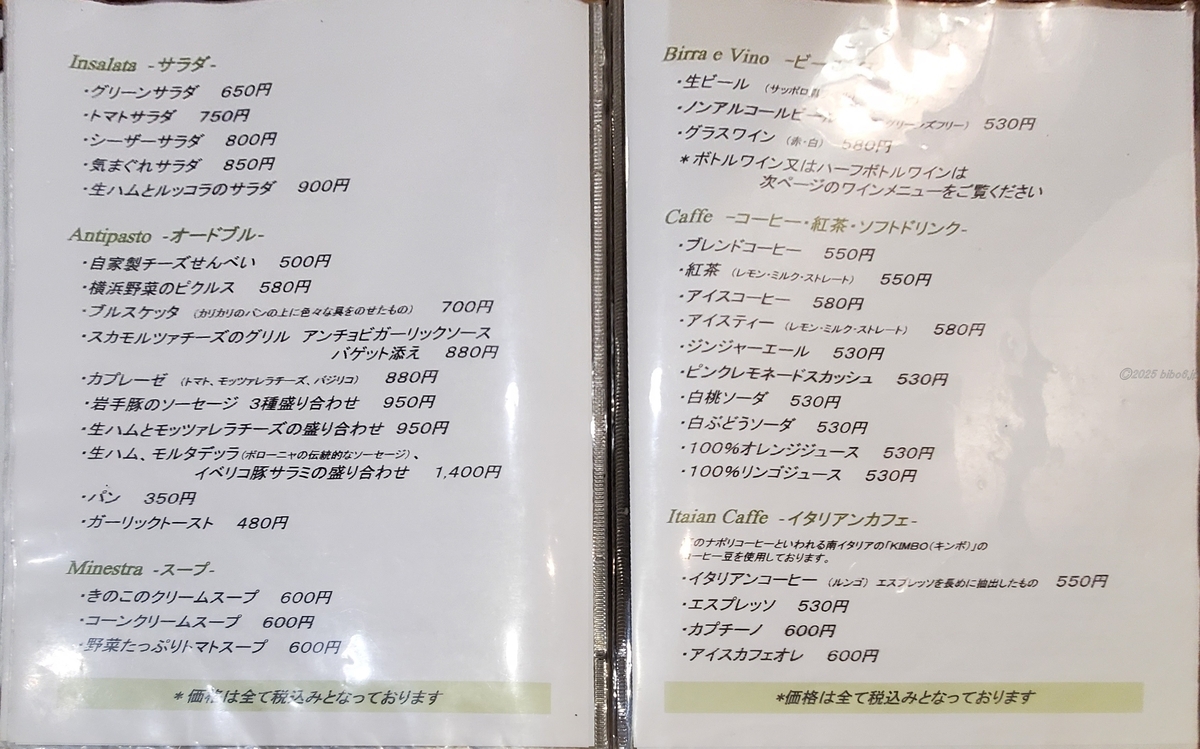 Insalata -サラダ-
・グリーンサラダ 650円
・トマトサラダ 750円
・シーザーサラダ 800円
・気まぐれサラダ 850円
・生ハムとルッコラのサラダ 900円
Antipasto -オードブル-
・自家製チーズせんべい 500円
・横浜野菜のピクルス 580円
・ブルスケッタ (カリカリのパンの上に色々な具をのせたもの) 700円
・スカモルツァチーズのグリル アンチョビガーリックソース
バゲット添え 880円
・カプレーゼ (トマト、モッツァレラチーズ、バジリコ) 880円
・岩手豚のソーセージ 3種盛り合わせ 950円
・生ハムとモッツァレラチーズの盛り合わせ 950円
・生ハム、モルタデッラ(ボローニャの伝統的なソーセージ)、
イベリコ豚サラミの盛り合わせ 1,400円
・パン 350円
・ガーリックトースト 480円
Minestra -スープ-
・きのこのクリームスープ 600円
・コーンクリームスープ 600円
・野菜たっぷりトマトスープ 600円
*価格は全て税込みとなっております
Birra e Vino -ビー
・生ビール (サッポロ
・ノンアルコールビール 530円
・グラスワイン (赤・白) 580円
*ボトルワイン又はハーフボトルワインは
次ページのワインメニューをご覧ください
Caffe -コーヒー・紅茶・ソフトドリンク-
・ブレンドコーヒー 550円
・紅茶 (レモン・ミルク・ストレート) 550円
・アイスコーヒー 580円
・アイスティー (レモン・ミルク・ストレート) 580円
・ジンジャーエール 530円
・ピンクレモネードスカッシュ 530円
・白桃ソーダ 530円
・白ぶどうソーダ 530円
・100%オレンジジュース 530円
・100%リンゴジュース 530円
Itaian Caffe -イタリアンカフェ-
のナポリコーヒーといわれる南イタリアの「KIMBO(キンボ)」の
コーヒー豆を使用しております。
・イタリアンコーヒー (ルンゴ) エスプレッソを長めに抽出したもの 550円
・エスプレッソ 530円
・カプチーノ 600円
・アイスカフェオレ 600円
*価格は全て税込みとなっております